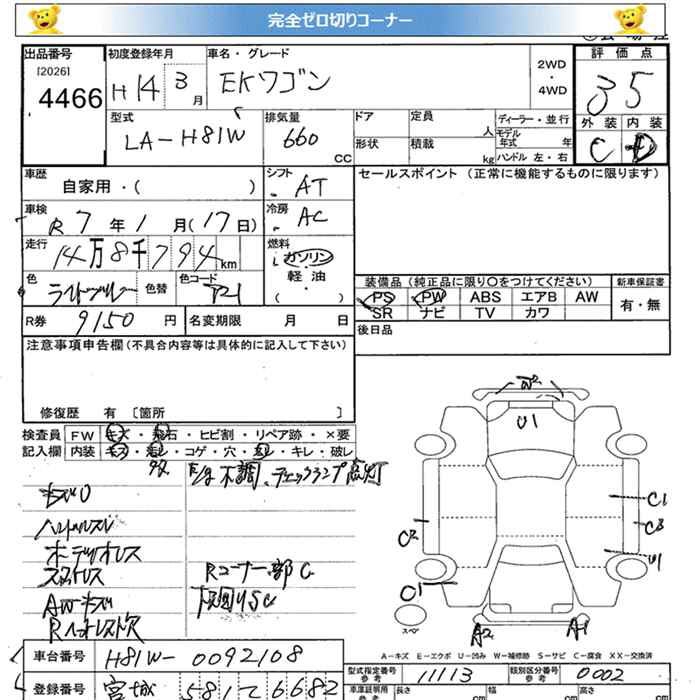 完全ゼロ切りコーナー
出品番号 初度登録年月 車名・グレード 2WD ・ 4WD 評価点
[2026]
4466 H 14 3月 EKワゴン 3 5
型式 排気量 ドア 定員 人 ディーラー・並行 外装 内装
LA-H81W 660 CC 形状 積載 kg モデル年式 年 ハンドル 左・右 C D
車歴 シフト セールスポイント (正常に機能するものに限ります)
自家用・( ) AT
車検 冷房
R 7年 1月(17日) AC
走行 燃料
14万8千794km ガソリン
軽・油
( )
色 色替 色コード
装備品 (純正品に限り○をつけてください) 新車保証書
PS PW ABS エアB AW 有・無
SR ナビ TV カワ
R券 9150円 名変期限 月 日 後日品
注意事項申告欄(不具合内容等は具体的に記入して下さい)
修復歴 有 〔箇所 〕
検査員 FW キズ・飛石・ヒビ割・リペア跡・×要
記入欄 内装 キズ・汚レ・コゲ・穴・ ・キレ・破レ
不調、チェックランプ点灯
キズ U
ボデーサビ
Rコーナー部C
AWキズ
下回りSC
U1
C1
C3
U1
C2
C1
スペア
A2 A1
A-キズ E-エクボ U-凹み W-補修跡 S-サビ C-腐食 XX-交換済
車台番号 H81W-0092108
型式指定番号 参考 11113 類別区分番号 参考 0002
登録番号 宮城 581 6682
車庫証明用 参考 長さ cm 幅 cm 高さ cm